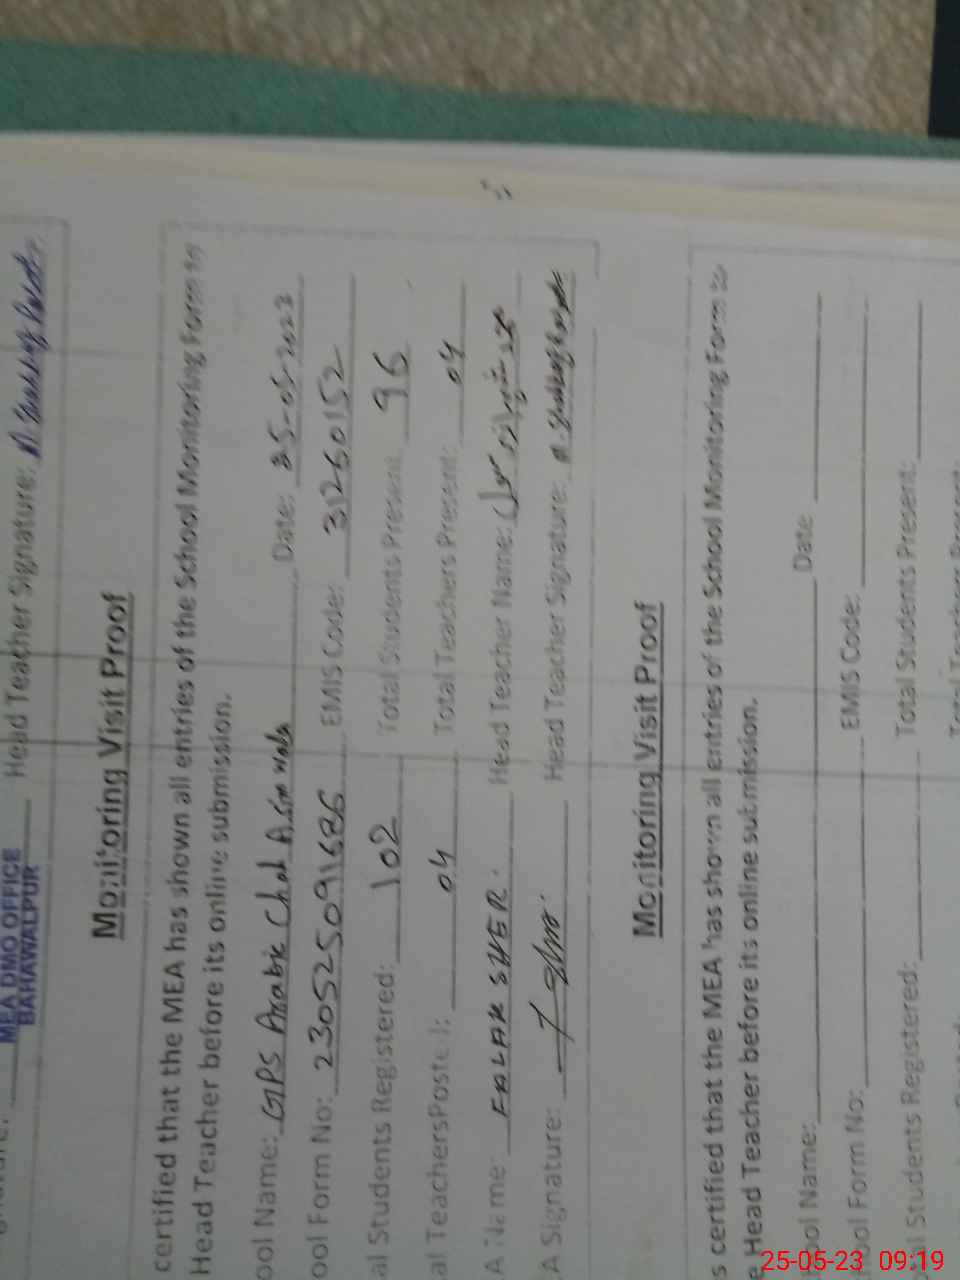 Head Teacher Signature:
MEA DMO OFFICE
BAHAWALPUR
Monitoring Visit Proof
certified that the MEA has shown all entries of the School Monitoring Form to
Head Teacher before its online submission.
ool Name: GPS Arabic Chah A Date: 25-05-2023
ool Form No: 230525091686 EMIS Code: 31260152
al Students Registered: 102 Total Students Present: 96
al Teachers Posted: 04 Total Teachers Present: 04
A Name: FALAK SHER. Head Teacher Name:
A Signature: Head Teacher Signature:
Monitoring Visit Proof
s certified that the MEA has shown all entries of the School Monitoring Form to
e Head Teacher before its online submission.
ool Name: Date
ool Form No: EMIS Code:
al Students Registered: Total Students Present:
Total Teachers Present:
25-05-23 09:19